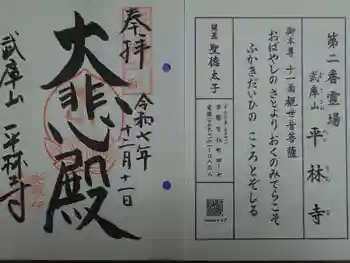 第二番霊場
武庫山 平林寺
御本尊 十一面観世音菩薩
おばやしの さとより おくのみてらこそ
ふかきだいひの こころとぞしる
開基 聖徳太子
奉拝
令和七年
十二月十一日
大悲殿
武庫山 平林寺